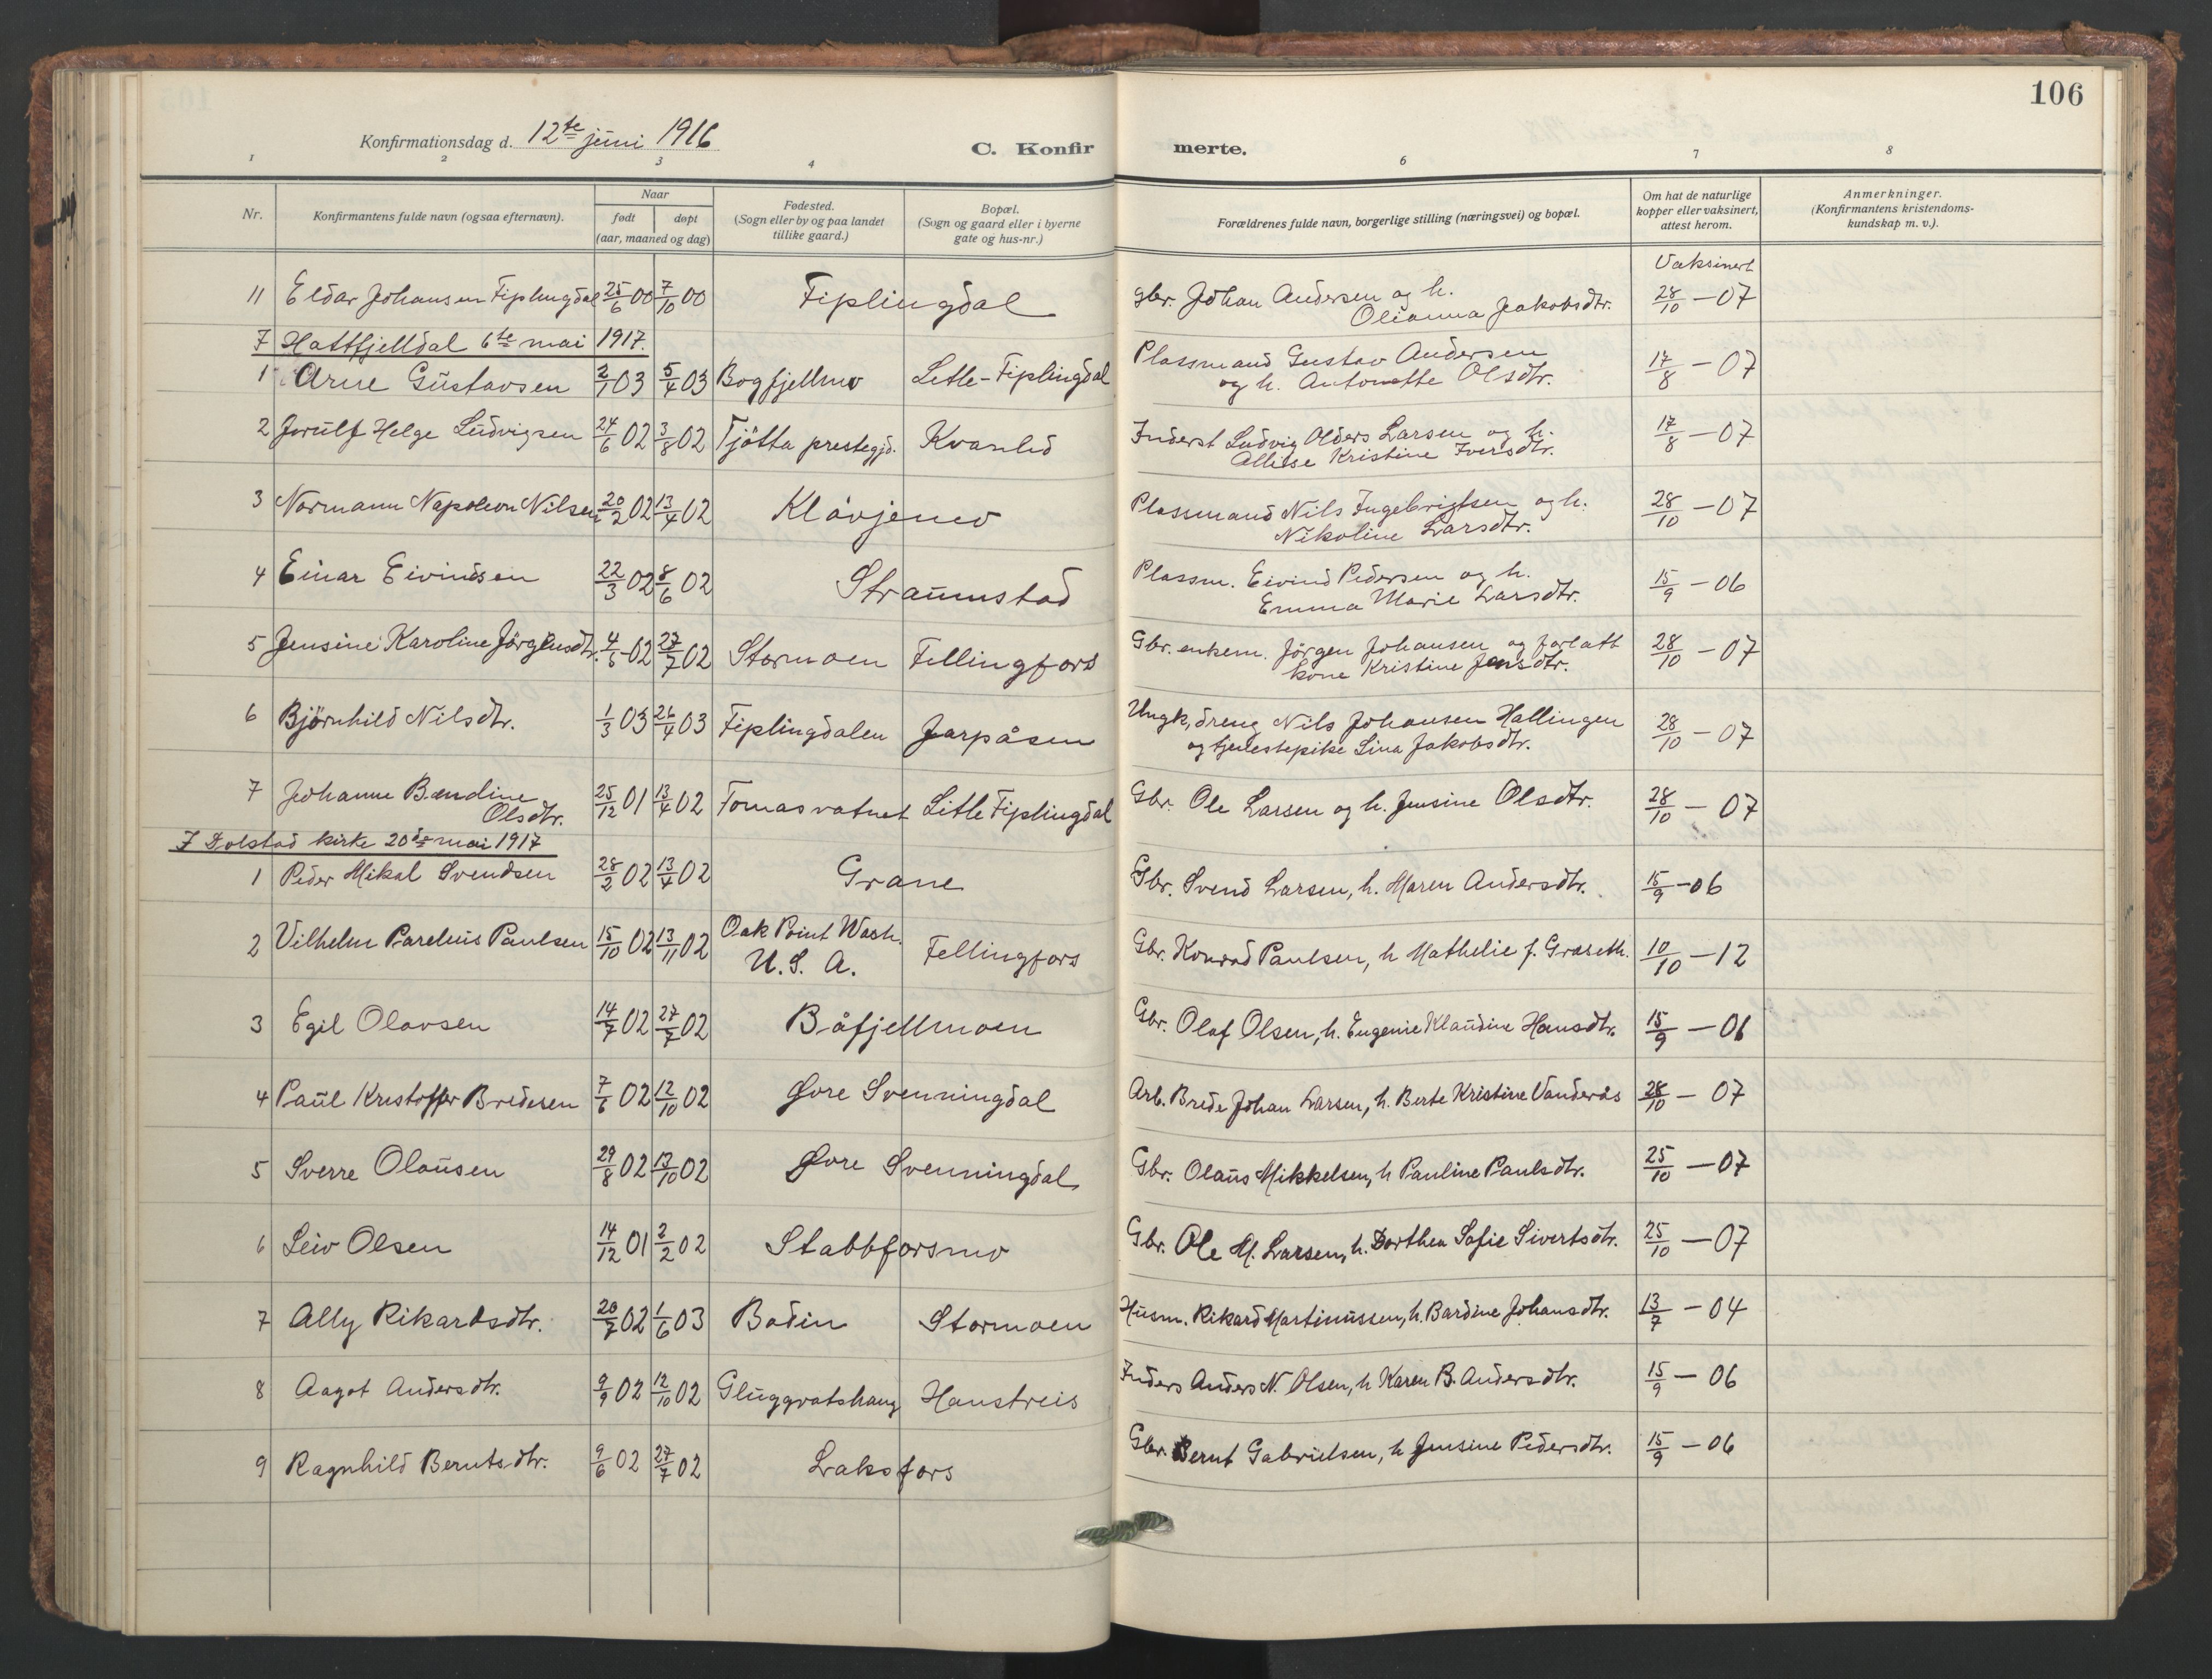 106
Konfirmationsdag d. 12te juni 1916
C. Konfirmerte.
1 2 3 4 6 7 8
Nr.
Konfirmantens fulde navn (ogsaa efternavn).
Naar
født døpt
(aar, maaned og dag)
Fødested.
(Sogn eller by og paa landet
tillike gaard.)
Bopæl.
(Sogn og gaard eller i byerne
gate og hus-nr.)
Forældrenes fulde navn, borgerlige stilling (næringsvei) og bopæl.
Om hat de naturlige
kopper eller vaksinert,
attest herom.
Anmerkninger.
(Konfirmantens kristendoms-
kundskap m. v.).
Vaksinert
11 Eldar Johansen Fiplingdal 25/6 00 7/10 00 Fiplingdal gbr. Johan Andersen og h. 28/10 - 07
Olianna Jakobsdtr.
I Hattfjelldal 6te mai 1917.
1 Arne Gustavsen 2/1 03 5/4 03 Bogfjellmo Letle-Fiplingdal Plassmand Gustav Andersen 17/8 - 07
og h. Antonette Olsdtr.
2 Jorulf Helge Ludvigsen 24/6 02 3/8 02 Tjötta prestegjd. Kvanlid Inderst Ludvig Olders Larsen og h. 17/8 - 07
Kristine Iversdtr.
3 Normann Napoleon Nilsen 20/2 02 13/4 02 Klåvjemo Plassmand Nils Ingebrigtsen og h. 28/10 - 07
Nikoline Larsdtr.
4 Einar Eivindsen 22/3 02 8/6 02 Straumstad Plassm. Eivind Pedersen og h. 15/9 - 06
Emma Marie Larsdtr.
5 Jensine Karoline Jörgensdtr. 4/5 02 27/7 02 Stormoen Fellingfors Gbr. enkem. Jörgen Johansen og forlatt 28/10 - 07
kone Kristine Jensdtr.
6 Björnhild Nilsdtr. 1/3 03 26/4 03 Fiplingdalen Jarpåsen Ungk, dreng Nils Johansen Hallingen 28/10 - 07
og tjenestepike Lina Jakobsdtr.
7 Johanne Bendine 25/12 01 13/4 02 Tomasvatnet Litle Fiplingdal Gbr. Ole Larsen og h. Jensine Olsdtr. 28/10 - 07
Olsdtr.
I Dolstad kirke 20de mai 1917
1 Peder Mikal Svendsen 28/2 02 13/4 02 Grane Gbr. Svend Larsen, h. Maren Andersdtr. 15/9 - 06
2 Vilhelm Parelius Paulsen 15/10 02 13/11 02 Oak Point Wash. Fellingfors Gbr. Konrad Paulsen, h Mathelie f. Græseth. 10/10 - 12
U. S. A.
3 Egil Olavsen 14/7 02 27/7 02 Båfjellmoen Gbr. Olaf Olsen, h. Eugenie Klaudine Hansdtr. 15/9 - 06
4 Paul Kristoffer Bredesen 7/6 02 12/10 02 Øvre Svenningdal Arb. Brede Johan Larsen, h. Berte Kristine Vanderås 28/10 - 07
5 Sverre Olausen 29/8 02 13/10 02 Øvre Svenningdal Gbr. Olaus Mikkelsen, h Pauline Paulsdtr. 25/10 - 07
6 Leiv Olsen 14/12 01 2/2 02 Stabbforsmo Gbr. Ole M. Larsen, h. Dorthea Sofie Sivertsdtr. 25/10 - 07
7 Ally Rikardsdtr. 20/7 02 1/6 03 Bodin Stormoen Husm. Rikard Martinussen, h. Bardine Johansdtr. 13/7 - 04
8 Aagot Andersdtr. 9/9 02 12/10 02 Gluggvatshaug Haustreis Inders Anders N. Olsen, h Karen B. Andersdtr. 15/9 - 06
9 Ragnhild Berntsdtr. 9/6 02 27/7 02 Laksfors Gbr. Bernt Gabrielsen, h Jensine Pedersdtr. 15/9 - 06